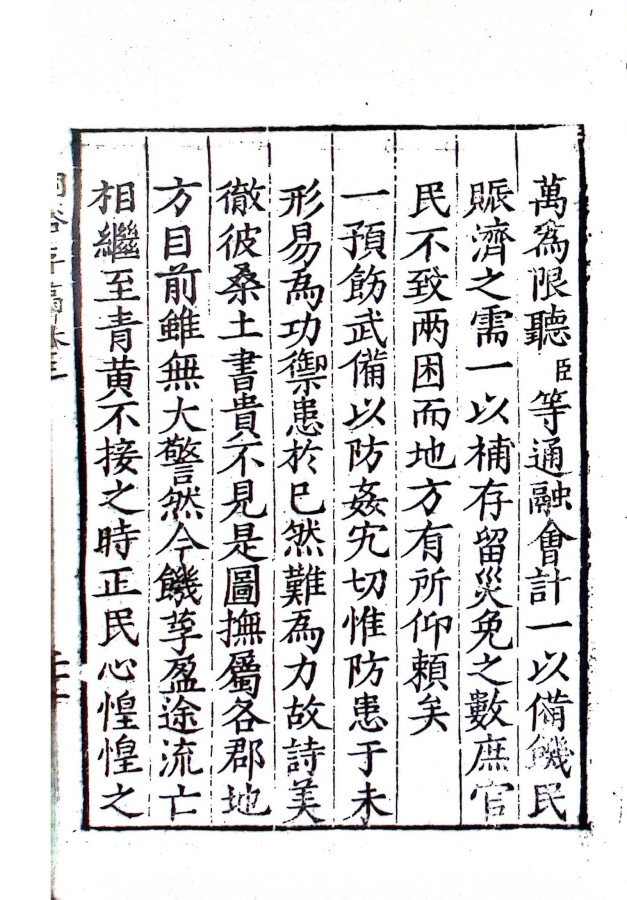 萬爲限聽臣等通融會計一以備饑民
賑濟之需一以補存留災免之數庶官
民不致兩困而地方有所仰頼矣
一預飭武備以防姦宄切惟防患于未
形易為功禦患於已然難為力故詩美
徹彼桑土書貴不見是圖撫屬各郡地
方目前雖無大警然今饑莩盈途流亡
相繼至青黄不接之時正民心惶惶之